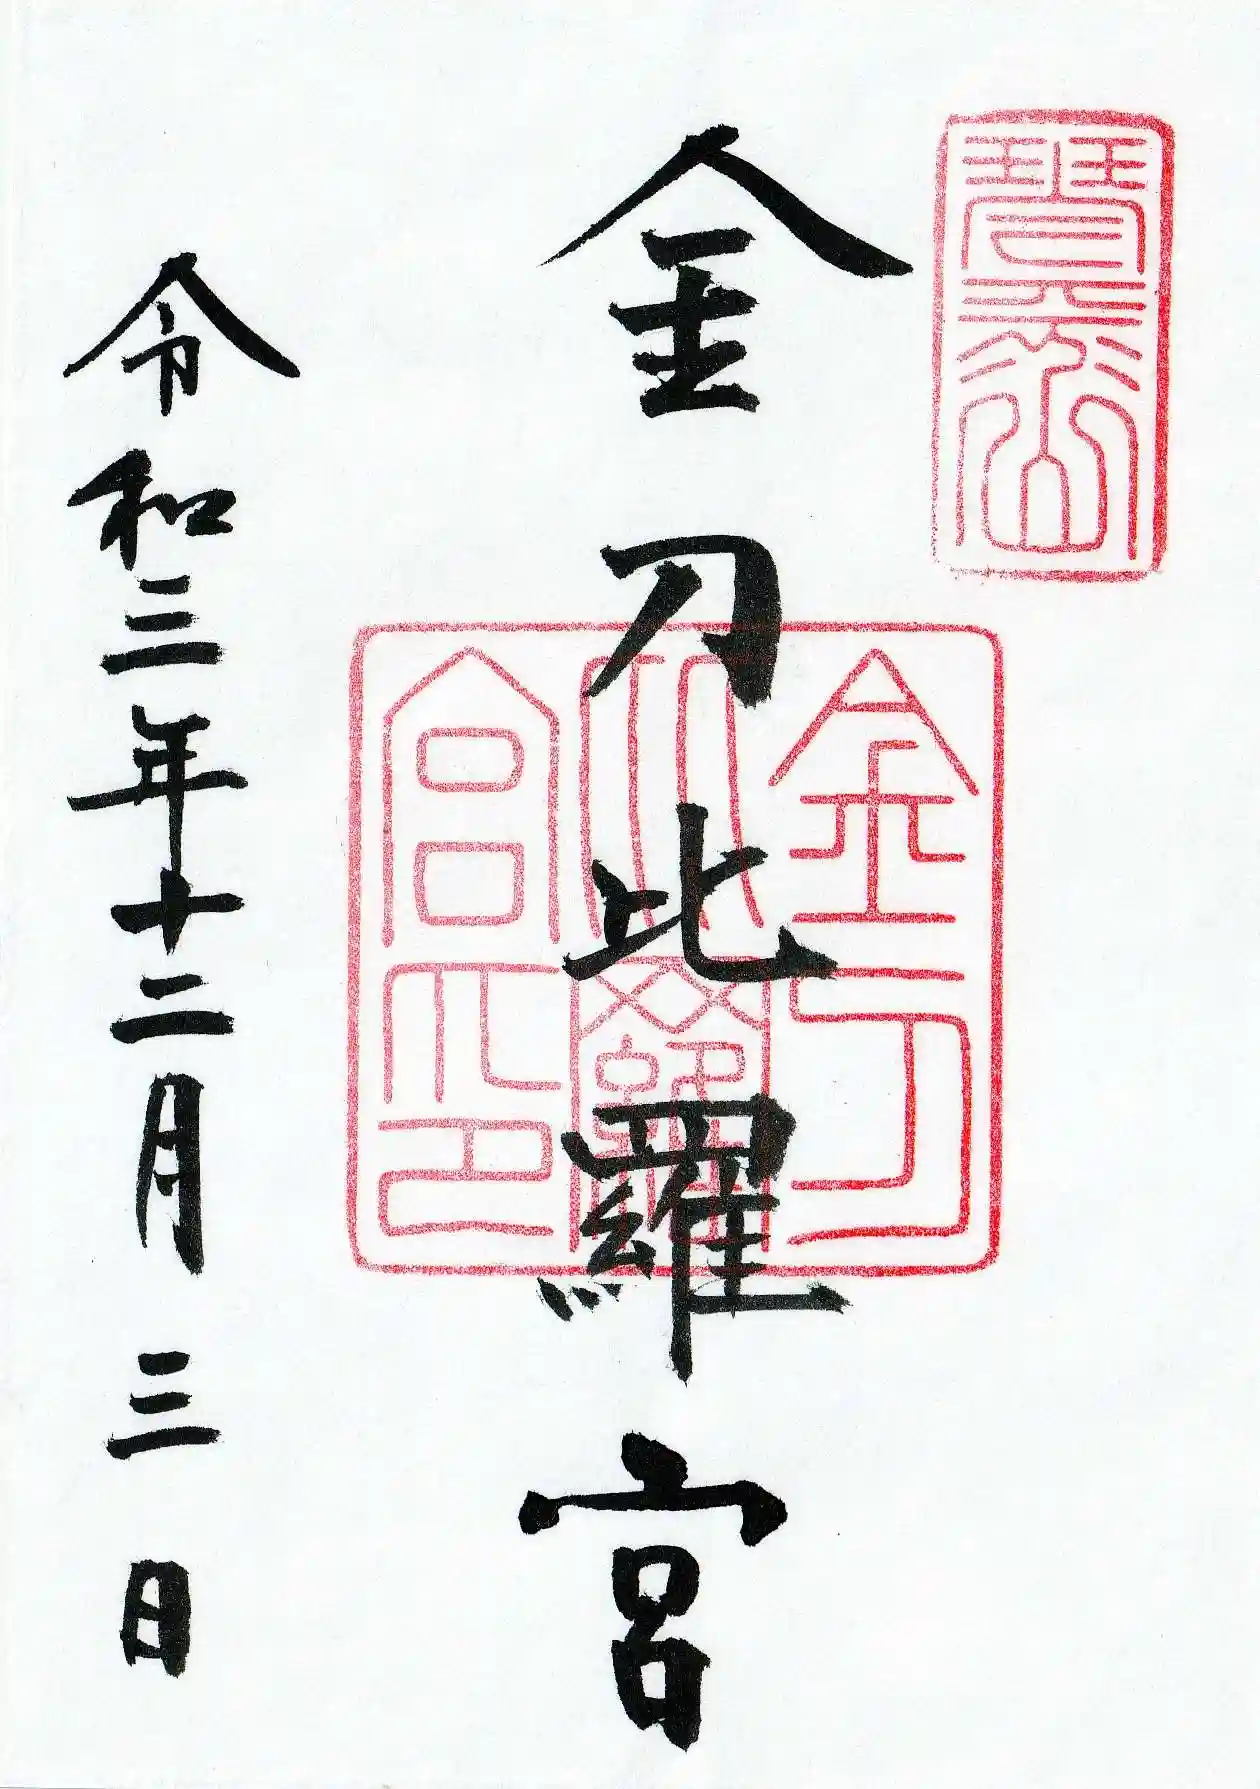 金刀比羅宮
金刀
比羅
宮印
令和三年十二月三日